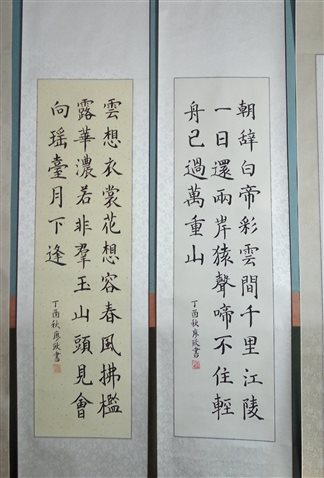 朝辭白帝彩雲間千里江陵
一日還兩岸猿聲啼不住輕
舟已過萬重山
丁酉秋書
雲想衣裳花想容春風拂檻
露華濃若非羣玉山頭見會
向瑶臺月下逢
丁酉秋書